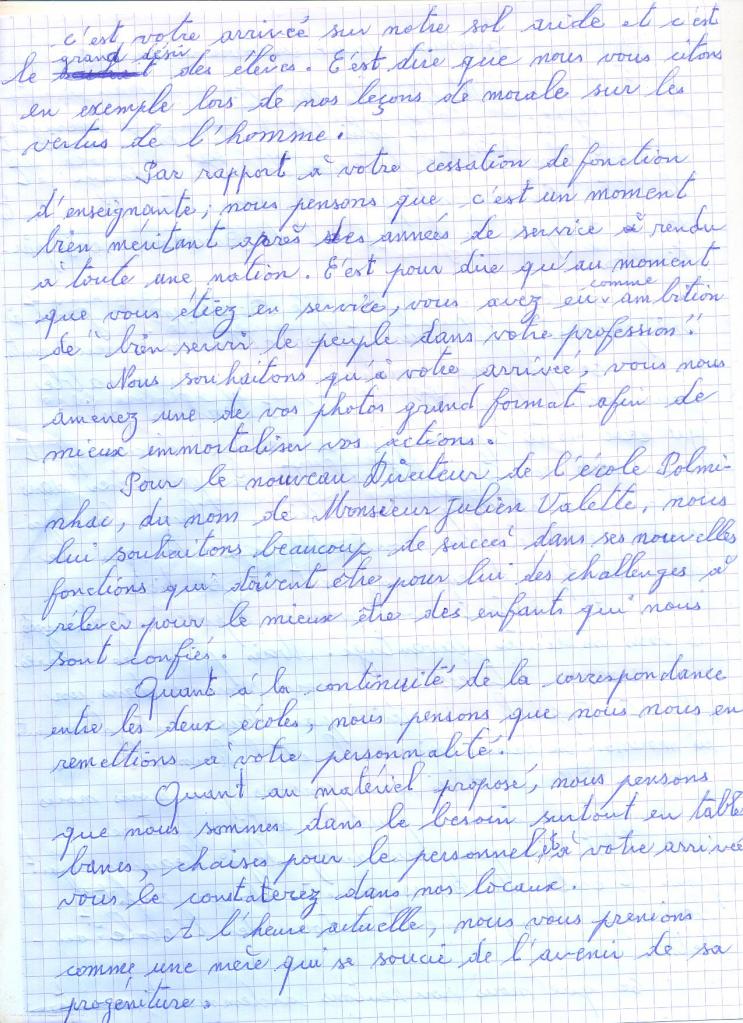 c'est votre arrivée sur notre sol aride et c'est
le grand désir des élèves. C'est dire que nous vous citons
en exemple lors de nos leçons de morale sur les
vertus de l'homme.
Par rapport à votre cessation de fonction
d'enseignante, nous pensons que c'est un moment
bien méritant après des années de service à rendu
à toute une nation. C'est pour dire qu'au moment
que vous étiez en service, vous avez eu comme ambition
de bien servir le peuple dans votre profession.
Nous souhaitons qu'à votre arrivée, vous nous
amenez une de vos photos grand format afin de
mieux immortaliser vos actions.
Pour le nouveau Directeur de l'école Polmi-
nhac, du nom de Monsieur Julien Valette, nous
lui souhaitons beaucoup de succès dans ses nouvelles
fonctions qui doivent être pour lui des challenges à
rélever pour le mieux être des enfants qui nous
sont confiés.
Quant à la continuité de la correspondance
entre les deux écoles, nous pensons que nous nous en
remettions à votre personnalité.
Quant au matériel proposé, nous pensons
que nous sommes dans le besoin surtout en table
bancs, chaises pour le personnel, à votre arrivée
vous le constaterez dans nos locaux.
A l'heure actuelle, nous vous prenions
comme une mère qui se soucie de l'avenir de sa
progéniture.